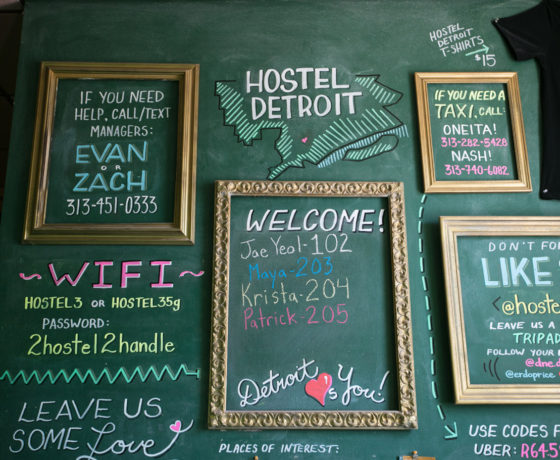 HOSTEL
DETROIT
T-SHIRTS
$15
IF YOU NEED
HELP, CALL/TEXT
MANAGERS:
EVAN
OR
ZACH
313-451-0333
HOSTEL
DETROIT
IF YOU NEED A
TAXI, CALL:
ONEITA!
313-282-5428
NASH!
313-740-6082
WELCOME!
Jae Yeol-102
Maya-203
Krista-204
Patrick-205
Detroit
's You!
WIFI
HOSTEL3 OR HOSTEL35g
PASSWORD:
2hostel2handle
LEAVE US
SOME Love
DON'T FO
LIKE
@hoste
LEAVE US A
TRIPAD
FOLLOW YOUR
@dnc.d
@erdaprice
PLACES OF INTEREST:
USE CODES F
UBER: R645